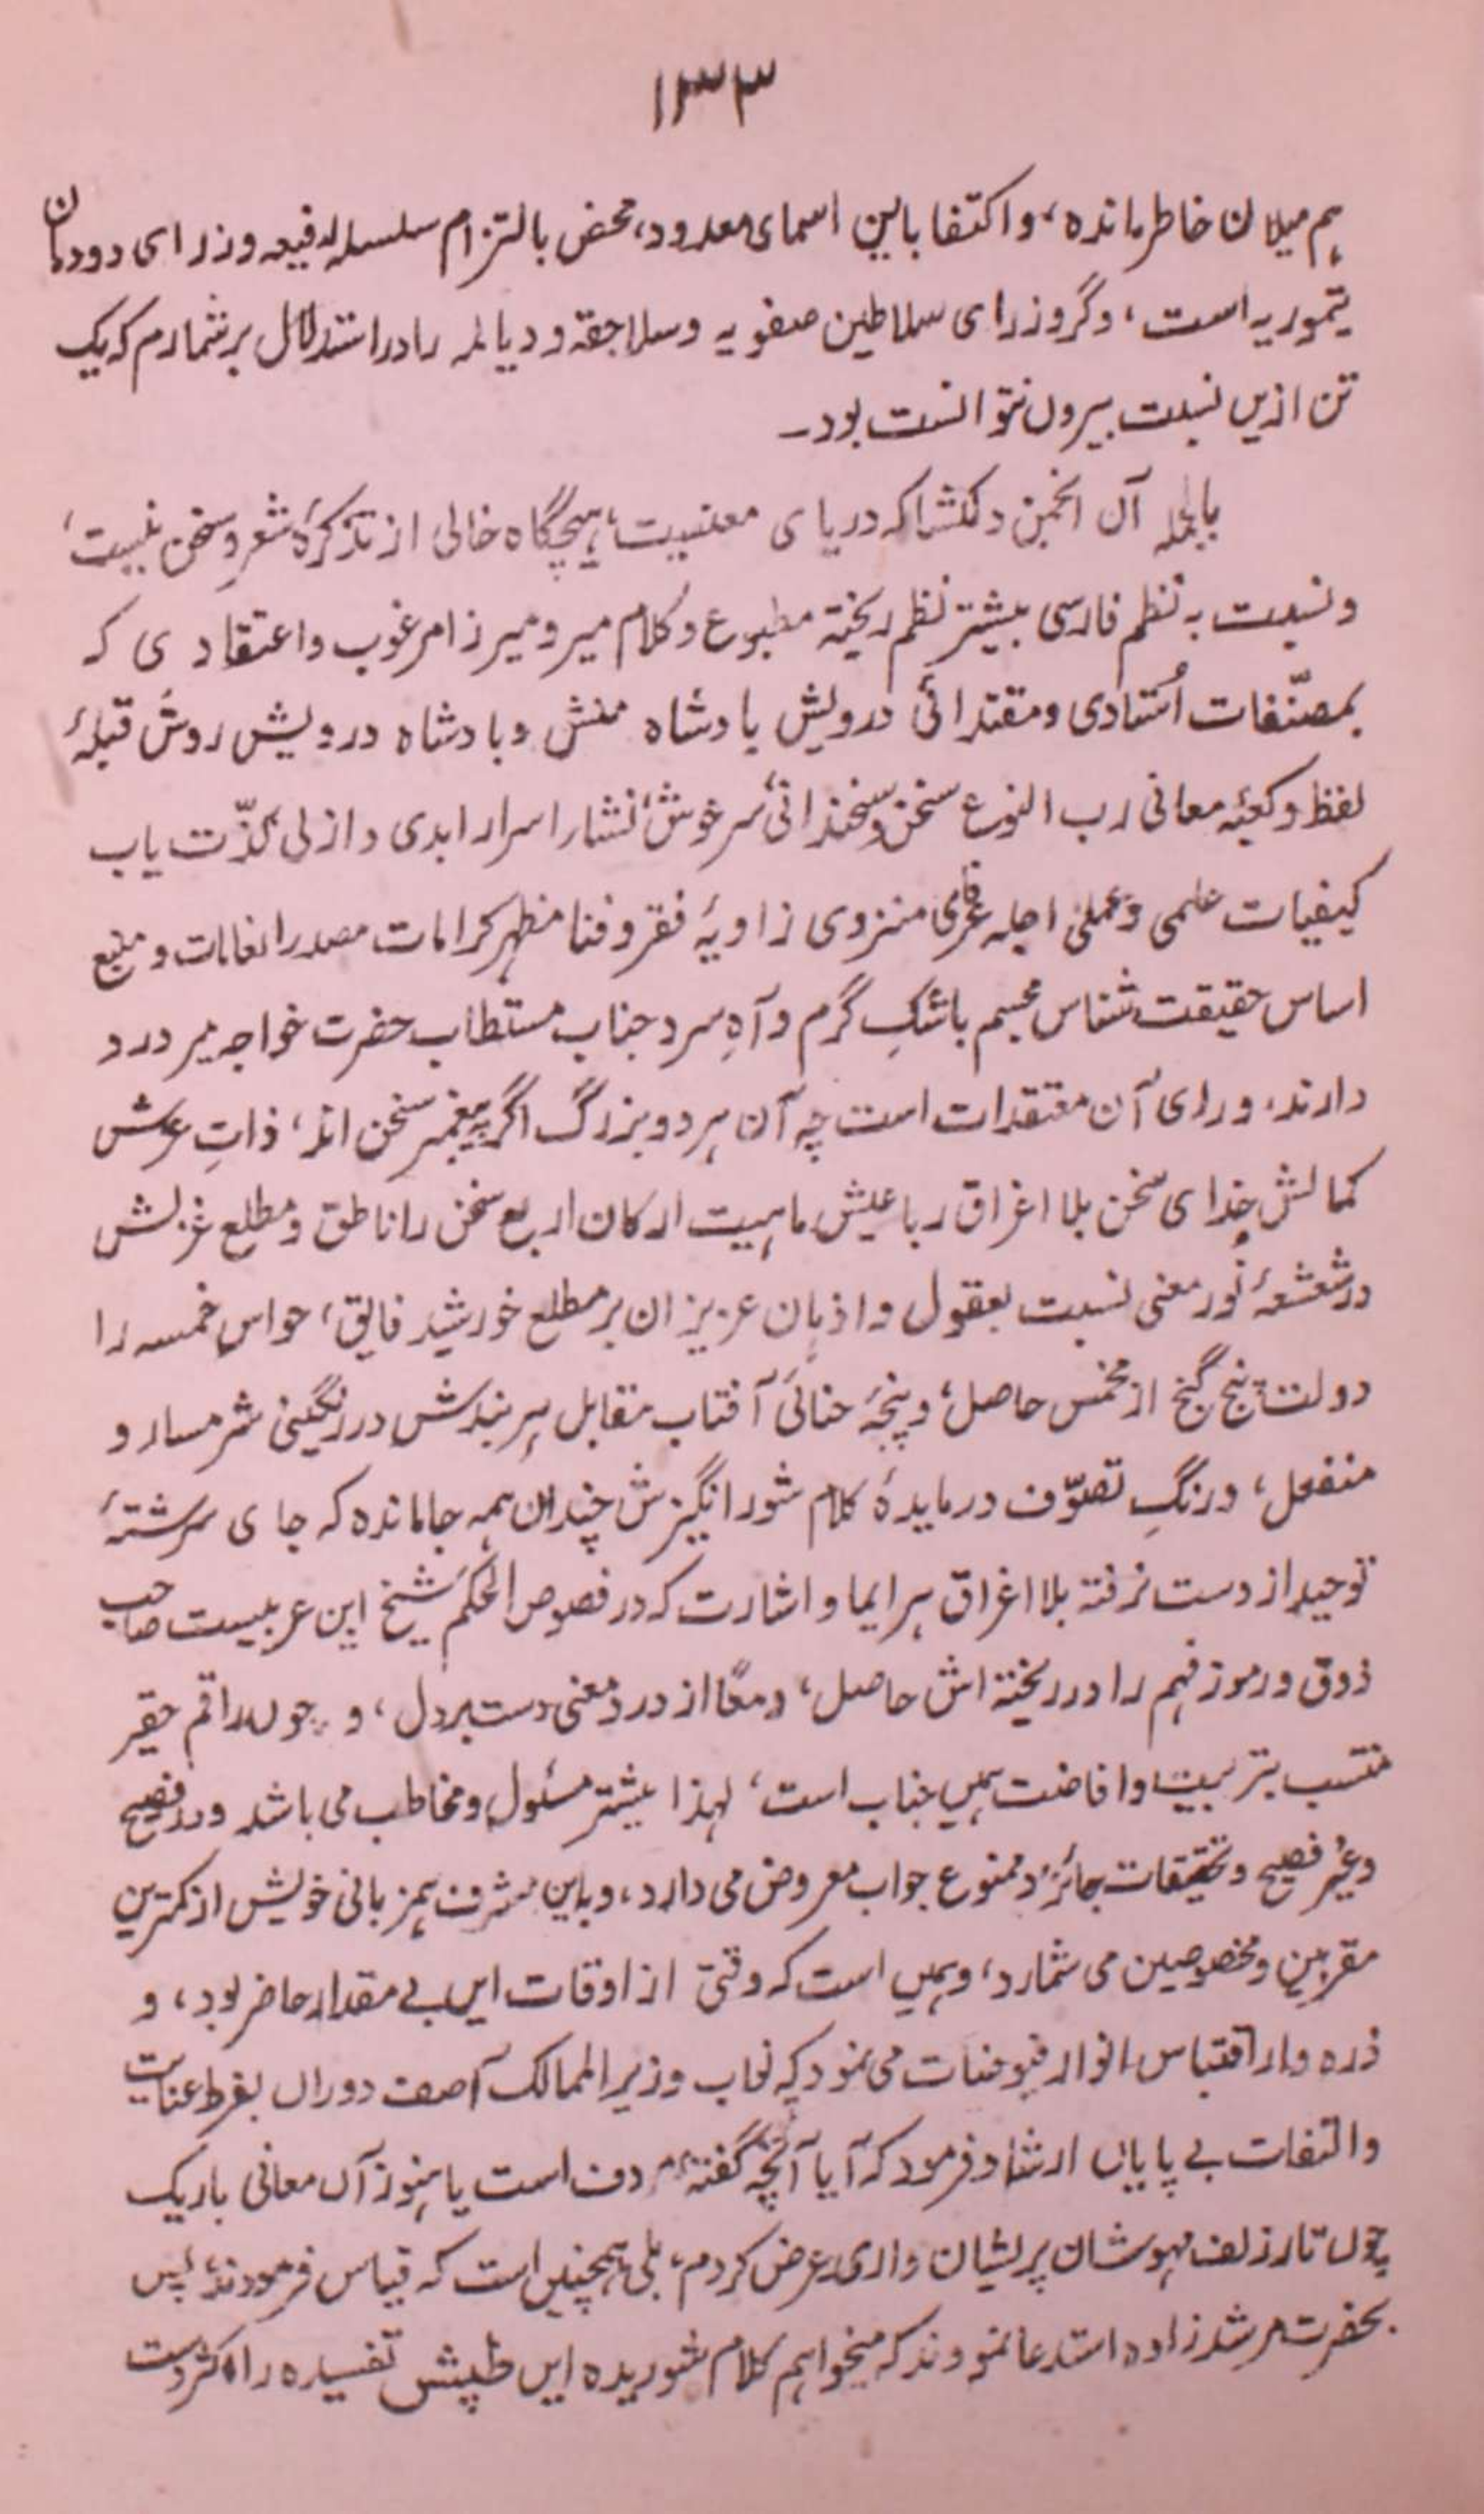 ۱۳۳
ہم میلان خاطر ماندہ، و اکتفا باین اسمای معدود، محض بالتزام سلسلہ رفیعہ وزرای دودمان
تیموریہ است، و گر وزرای سلاطین صفویہ و سلاجقہ و دیالمہ را در استدلال بر شمارم کہ یک
تن ازیں نسبت بیروں نتوانست بود۔
بالجملہ آن انجمن دلکشا کہ دریای معنیست، ہیچگاہ خالی از تذکرۂ شعر و سخن نیست،
و نسبت بہ نظم فارسی بیشتر نظم ریختہ مطبوع و کلام میر و میرزا مرغوب و اعتقادی کہ
بمصنّفات اُستادی و مقتدائی درویش بادشاہ منش و بادشاہ درویش روش قبلۂ
لفظ و کعبۂ معانی رب النوع سخن و سخندانی، سرخوش نشاء اسرار ابدی و ازلی، لذّت یاب
کیفیات علمی و عملی اجلہ عرفای منزوی زاویۂ فقر و فنا مظہر کرامات مصدر انعامات و منبع
اساس حقیقت شناس مجسم باشکِ گرم و آہِ سرد جناب مستطاب حضرت خواجہ میر درد
دارند، ورای آن معتقدات است چہ آن ہر دو بزرگ اگر پیغمبر سخن اند، ذاتِ عرش
کمالش خدای سخن بلا اغراق رباعیش ماہیت ارکان اربع سخن را ناطق و مطلع غزلش
در شعشعۂ نور معنی نسبت بعقول و اذہان عزیزان بر مطلع خورشید فایق، حواس خمسہ را
دولت پنج گنج از مخمس حاصل، و پنجۂ حنائی آفتاب مقابل ہر بندش در رنگینی شرمسار و
منفعل، و رنگِ تصوّف در مایدۂ کلام شور انگیزش چندان ہمہ جا ماندہ کہ جای سرشتۂ
توحید از دست نرفتہ بلا اغراق ہر ایما و اشارت کہ در فصوص الحکم شیخ ابن عربیست صاحب
ذوق و رموز فہم را در ریختہ اش حاصل، و معًا از درد معنی دست بر دل، و چوں راقم حقیر
منتسب بتربیت و افاضت ہمیں جناب است، لہذا بیشتر مسئول و مخاطب می باشد و در فصیح
و غیر فصیح و تحقیقات جائز و ممنوع جواب معروض می دارد، و باین شرف ہمزبانی خویش از کمترین
مقربین و مخصوصین می شمارد، و ہمیں است کہ وقتی از اوقات ایں بے مقدار حاضر بود، و
ذرہ وار اقتباس انوار فیوضات می نمود کہ نواب وزیر الممالک آصف دوراں بفرط عنایت
و التفات بے پایاں ارشاد فرمود کہ آیا آنچہ گفتۂ مردف است یا ہنوز آں معانی باریک
چوں تار زلف مہوشان پریشان داری، عرض کردم، بلی ہمچنیں است کہ قیاس فرمودند، پس
بحضرت مرشد زادہ استدعا نمودند کہ میخواہم کلام شوریدہ ایں طپش تفسیدہ را اکثر دست